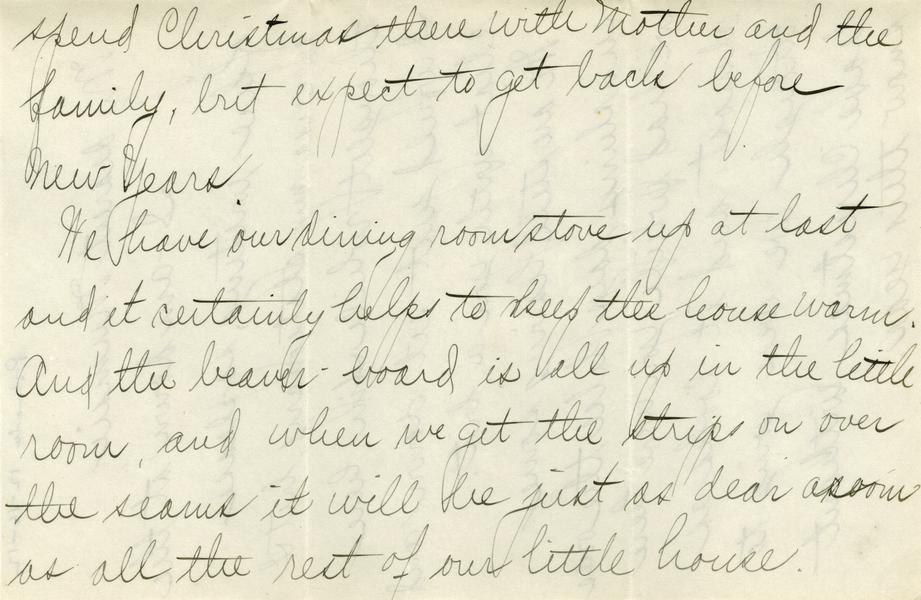 spend Christmas there with Mother and the
family, but expect to get back before
New Years
We have our dining room stove up at last
and it certainly helps to keep the house warm.
And the beaver-board is all up in the little
room, and when we get the strips on over
the seams it will be just as dear a room
as all the rest of our little house.